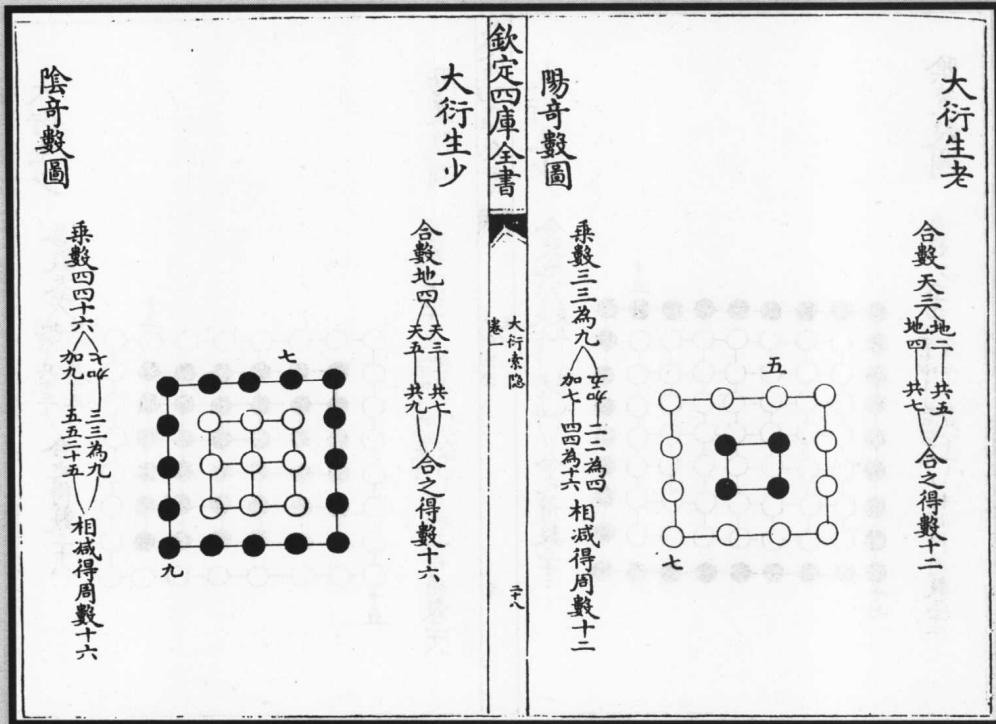 大衍生老
陽竒數圖
合數天三
地二 共五
地四 共七
合之得數十二
五
七
乘數三三為九
二二為四
加七 四四為十六
相減得周數十二
欽定四庫全書
大衍索隱
卷一
二十八
大衍生少
陰竒數圖
合數地四
天三 共七
天五 共九
合之得數十六
七
九
乘數四四十六
三三為九
加九 五五二十五
相減得周數十六